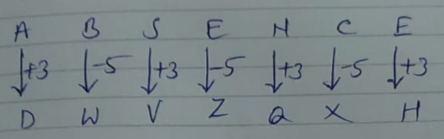 A B S E N C E
+3 -5 +3 -5 +3 -5 +3
D W V Z Q X H